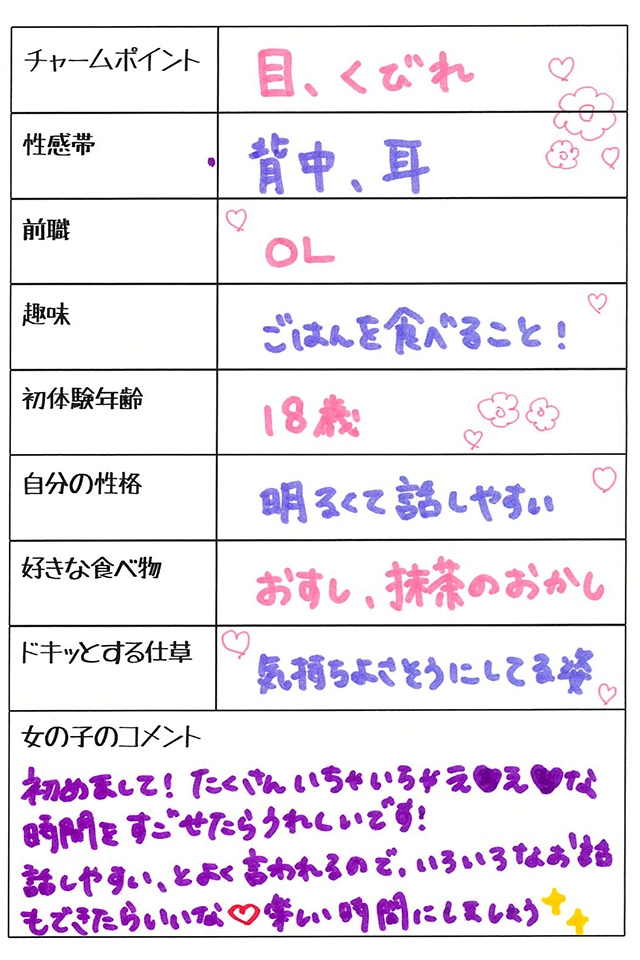 チャームポイント 目、くびれ
性感帯 背中、耳
前職 OL
趣味 ごはんを食べること!
初体験年齢 18歳
自分の性格 明るくて話しやすい
好きな食べ物 おすし、抹茶のおかし
ドキッとする仕草 気持ちよさそうにしてる姿
女の子のコメント
初めまして! たくさんいちゃいちゃえ♥え♥な
時間をすごせたらうれしいです!
話しやすい、とよく言われるので、いろいろなお話
もできたらいいな♡楽しい時間にしましょう